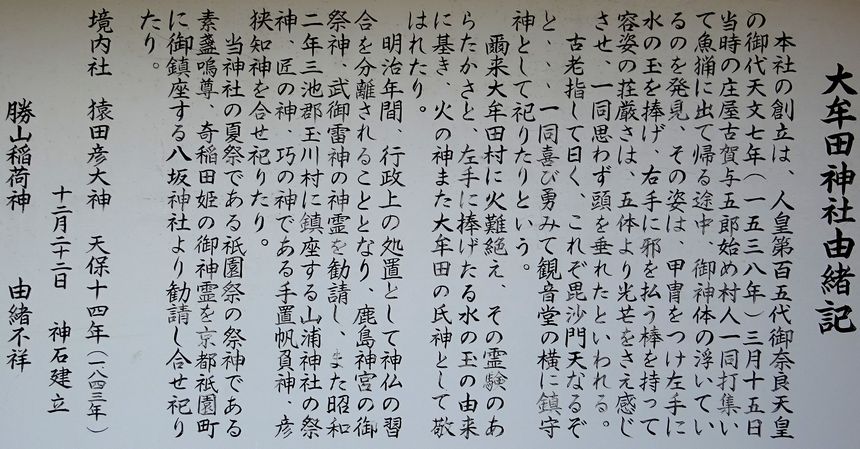 大牟田神社由緒記
本社の創立は、人皇第百五代御奈良天皇
の御代天文七年(一五三八年)三月十五日
当時の庄屋古賀与五郎始め村人一同打集い
て魚猟に出て帰る途中、御神体の浮いてい
るのを発見、その姿は、甲冑をつけ左手に
水の玉を捧げ、右手に邪を払う棒を持って
容姿の荘厳さは、五体より光芒をさえ感じ
させ、一同思わず頭を垂れたといわれる。
古老指して曰く、これぞ毘沙門天なるぞ
と、、、一同喜び勇みて観音堂の横に鎮守
神として祀りたりという。
爾来大牟田村に火難絶え、その霊験のあ
らたかさと、左手に捧げたる水の玉の由来
に基き、火の神また大牟田の氏神として敬
はれたり。
明治年間、行政上の処置として神仏の習
合を分離されることとなり、鹿島神宮の御
祭神、武御雷神の神霊を勧請し、また昭和
二年三池郡玉川村に鎮座する山浦神社の祭
神、匠の神、巧の神である手置帆負神、彦
狭知神を合せ祀りたり。
当神社の夏祭である祇園祭の祭神である
素盞嗚尊、奇稲田姫の御神霊を京都祇園町
に御鎮座する八坂神社より勧請し合せ祀り
たり。
境内社 猿田彦大神 天保十四年(一八四三年)
十二月二十二日 神石建立
勝山稲荷神 由緒不祥